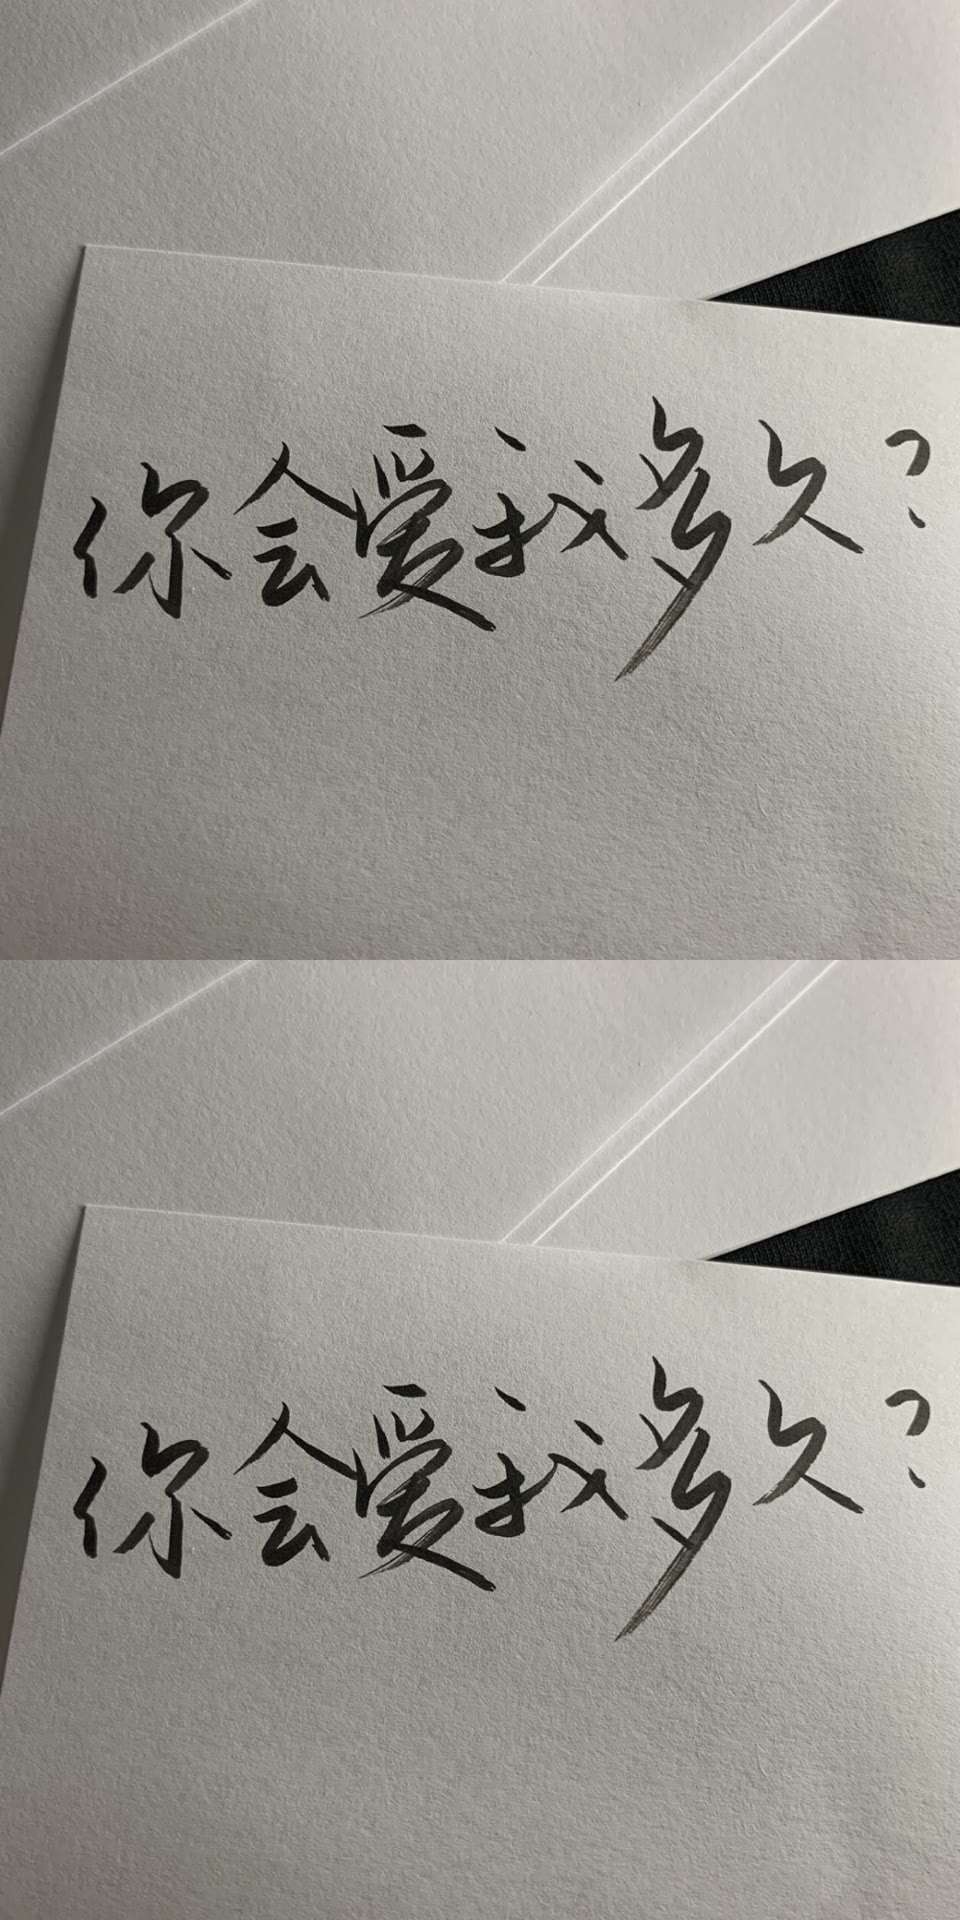 你会爱我多久?
你会爱我多久?